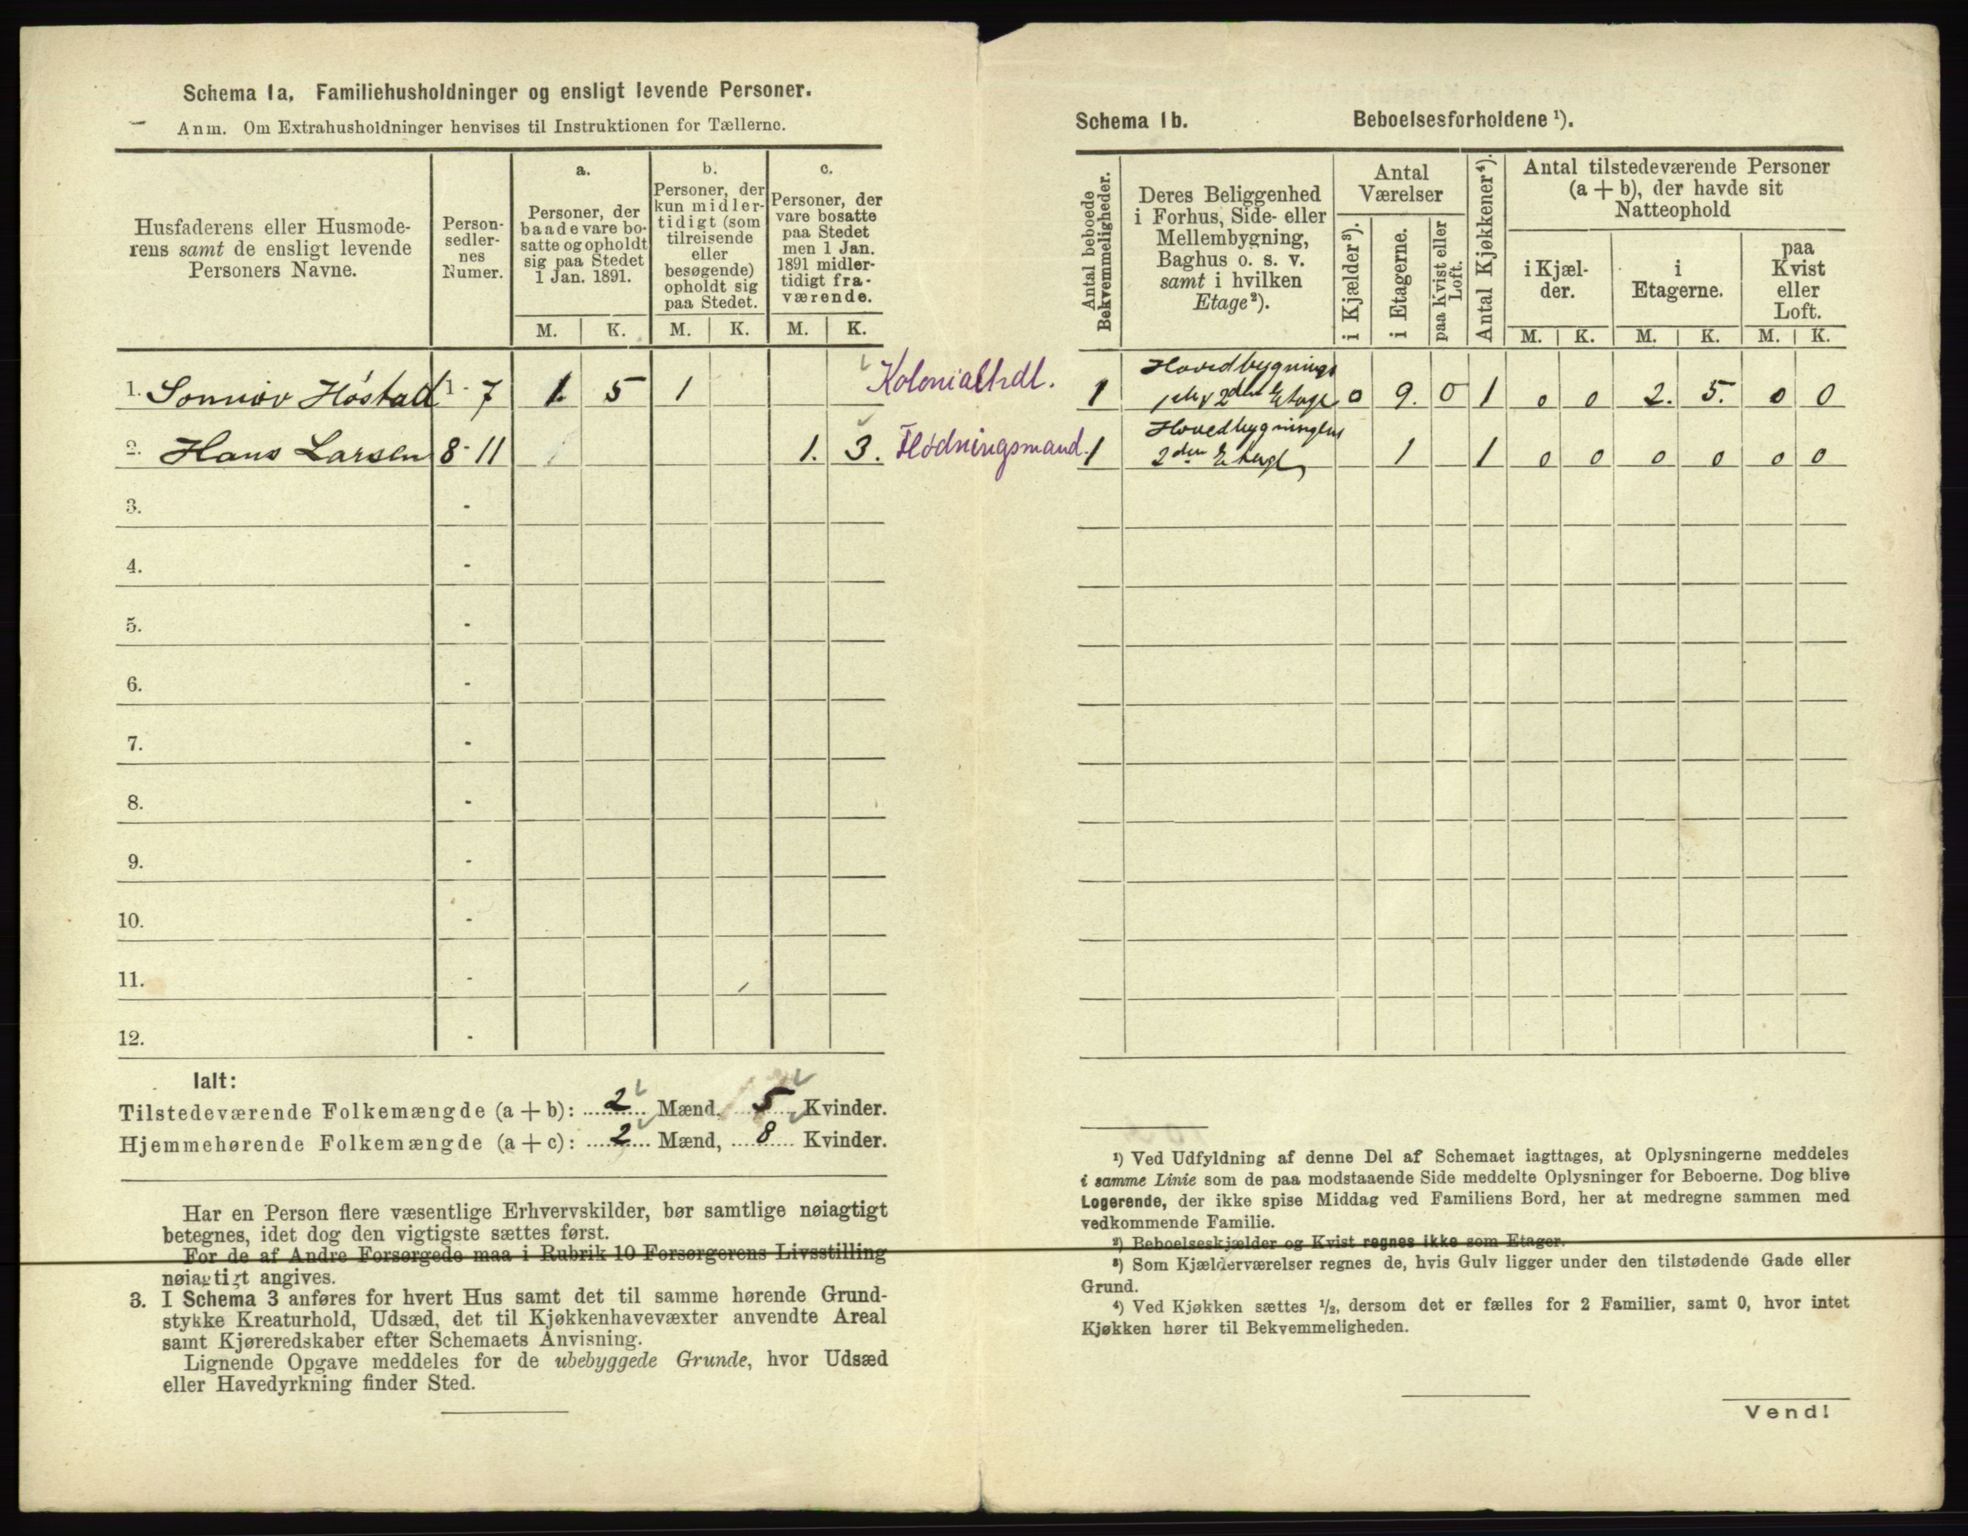 Schema 1a. Familiehusholdninger og ensligt levende Personer.
Anm. Om Extrahusholdninger henvises til Instruktionen for Tællerne.
Husfaderens eller Husmode-
rens samt de ensligt levende
Personers Navne.
Person-
sedler-
nes
Numer.
a.
Personer, der
baade vare bo-
satte og opholdt
sig paa Stedet
1 Jan. 1891.
b.
Personer, der
kun midler-
tidigt (som
tilreisende
eller
besøgende)
opholdt sig
paa Stedet.
c.
Personer, der
vare bosatte
paa Stedet
men 1 Jan.
1891 midler-
tidigt fra-
værende.
M. K. M. K. M. K.
1. Høstad 1 - 7 1. 5 1 Kolonialhdl.
2. Hans Larsen 8 - 11 1. 3. Flødningsmand.
3. -
4. -
5. -
6. -
7. -
8. -
9. -
10. -
11. -
12. -
Ialt:
Tilstedeværende Folkemængde (a + b): 2 Mænd, 5 Kvinder.
Hjemmehørende Folkemængde (a + c): 2 Mænd, 8 Kvinder.
Har en Person flere væsentlige Erhvervskilder, bør samtlige nøiagtigt
betegnes, idet dog den vigtigste sættes først.
For de af Andre Forsørgede maa i Rubrik 10 Forsørgerens Livsstilling
nøiagtigt angives.
3. I Schema 3 anføres for hvert Hus samt det til samme hørende Grund-
stykke Kreaturhold, Udsæd, det til Kjøkkenhavevæxter anvendte Areal
samt Kjøreredskaber efter Schemaets Anvisning.
Lignende Opgave meddeles for de ubebyggede Grunde, hvor Udsæd
eller Havedyrkning finder Sted.
Schema 1b. Beboelsesforholdene ¹).
Antal beboede
Bekvemmeligheder.
Deres Beliggenhed
i Forhus, Side- eller
Mellembygning,
Baghus o. s. v.
samt i hvilken
Etage²).
Antal
Værelser
i Kjælder³).
i Etagerne.
paa Kvist eller
Loft.
Antal Kjøkkener⁴).
Antal tilstedeværende Personer
(a + b), der havde sit
Natteophold
i Kjæl-
der.
i
Etagerne.
paa
Kvist
eller
Loft.
M. K. M. K. M. K.
1 Hovedbygnings
2den Etage 0 9. 0 1 0 0 2. 5. 0 0
1 Hovedbygningens
2den Etage 1 1 0 0 0 0 0 0
¹) Ved Udfyldning af denne Del af Schemaet iagttages, at Oplysningerne meddeles
i samme Linie som de paa modstaaende Side meddelte Oplysninger for Beboerne. Dog blive
Logerende, der ikke spise Middag ved Familiens Bord, her at medregne sammen med
vedkommende Familie.
²) Beboelseskjælder og Kvist regnes ikke som Etager.
³) Som Kjælderværelser regnes de, hvis Gulv ligger under den tilstødende Gade eller
Grund.
⁴) Ved Kjøkken sættes ½, dersom det er fælles for 2 Familier, samt 0, hvor intet
Kjøkken hører til Bekvemmeligheden.
Vend!